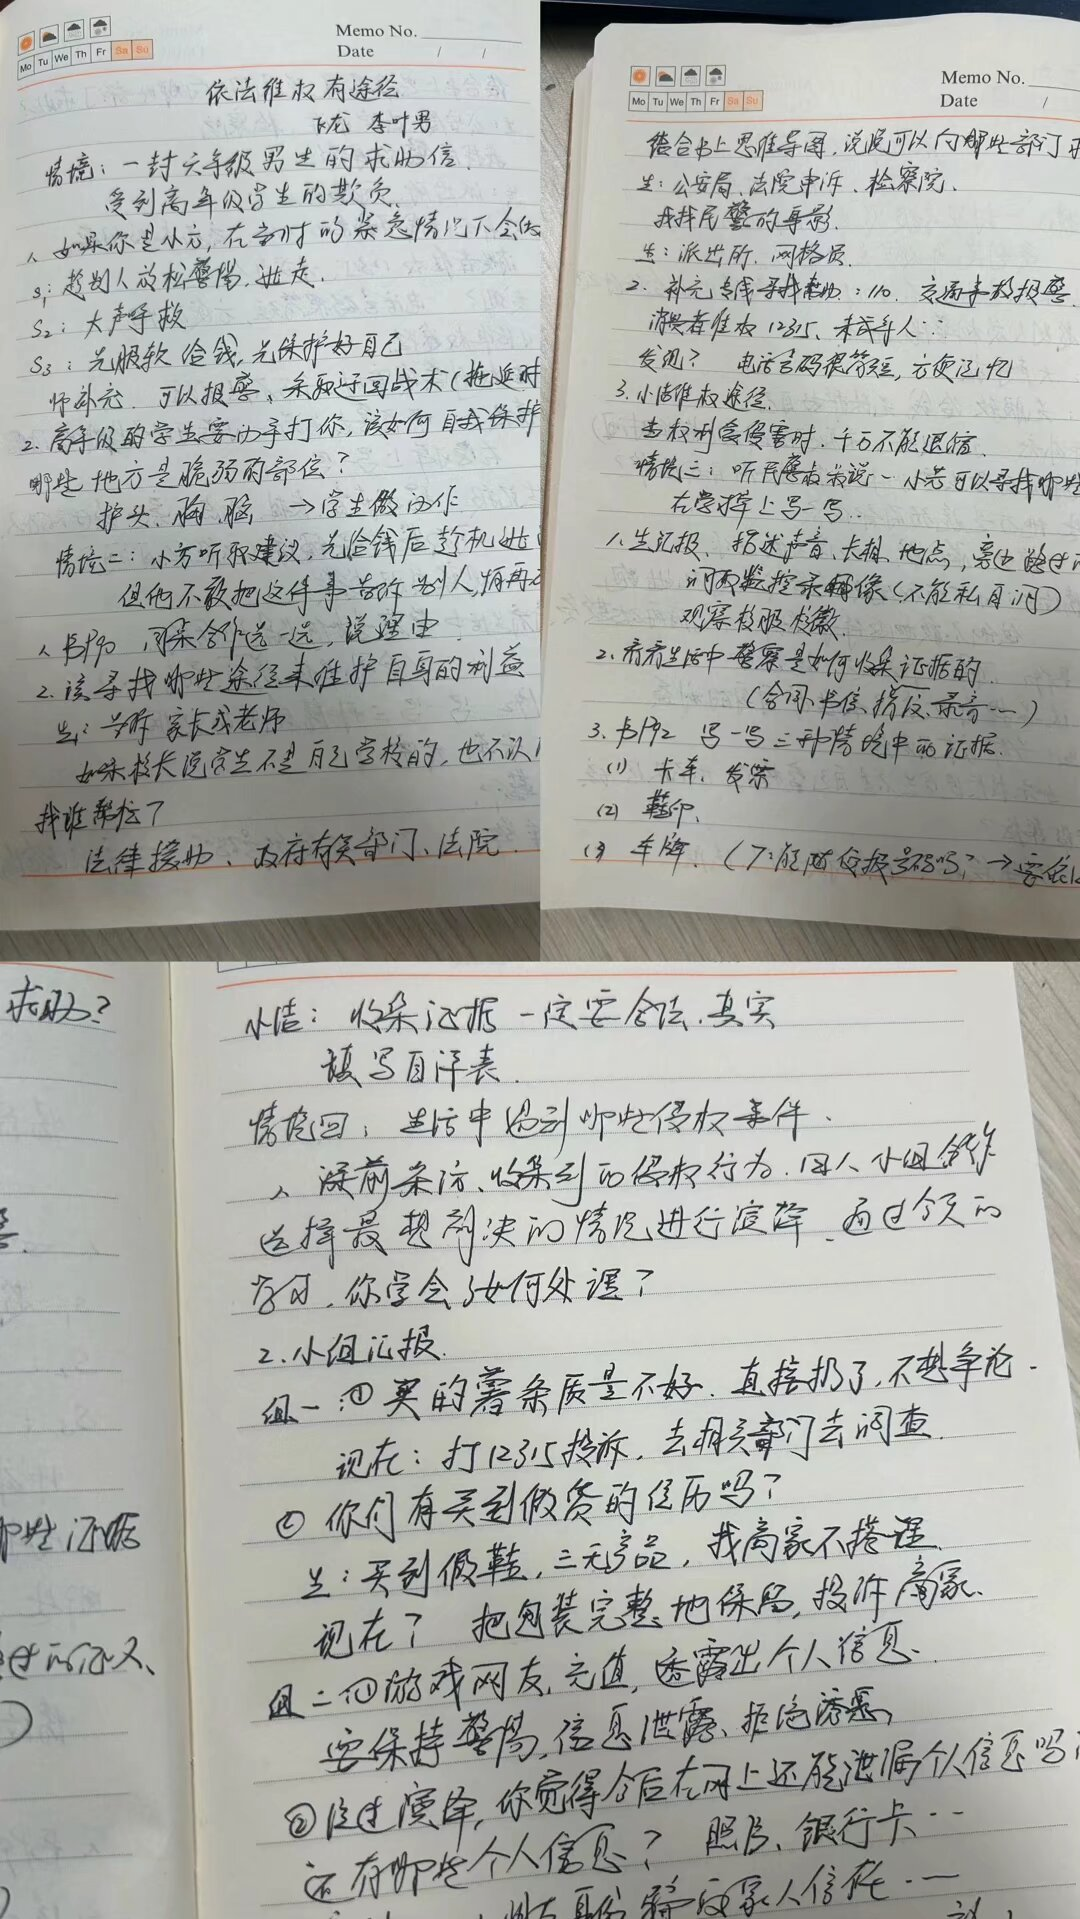 Memo No.
Mo Tu We Th Fr Sa Su
Date / /
依法维权有途径
飞龙 李叶男
情境：一封六年级男生的求助信
受到高年级学生的欺负
1、如果你是小方，在当时的紧急情况下会做
S1：趁别人放松警惕，逃走.
S2：大声呼救
S3：先服软给钱，先保护好自己
师补充 可以报警、采取迂回战术(拖延时
2. 高年级的学生要动手打你，该如何自我保护
哪些地方是脆弱的部位？
护头、胸、脑 → 学生做动作
情境二：小方听取建议，先给钱后趁机逃
但他不敢把这件事告诉别人，怕再
1、书P90 同桌合作选一选，说理由.
2. 该寻找哪些途径来维护自身的利益
生：告诉家长或老师
如果校长说学生不是自己学校的，也不认
找谁帮忙？
法律援助、政府有关部门、法院
Memo No.
Mo Tu We Th Fr Sa Su
Date /
结合书上思维导图，说说可以向哪些部门求
生：公安局、法院申诉、检察院.
我找民警的导影.
生：派出所、网格员.
2. 补充专线寻找帮助：110、交通事故报警
消费者维权 12315、未成年人…
发现？ 电话号码很简短，方便记忆
3. 小结维权途径.
当权利舍侵害时，千万不能退缩
情境三：听民警叔叔说一小芳可以寻找哪些
在学单上写一写..
1、生汇报、描述声音、长相、地点，旁边路过
调取监控录像(不能私自调)
观察校服校徽.
2. 看看生活中警察是如何收集证据的
(合同、书信、指纹、录音…)
3. 书P92 写一写三种情境中的证据.
(1) 卡车、发票
(2) 鞋印、
(3) 车牌. (T：能随便报号码吗？→要依
求助？
警.
哪些证据
过的证人、
)
小结：收集证据一定要合法、真实
填写自评表.
情境四：生活中遇到哪些侵权事件.
1、课前采访、收集到的侵权行为，四人小组合作
选择最想判决的情况进行演绎，通过今天的
学习，你学会了如何处理？
2. 小组汇报.
组一：①买的薯条质量不好，直接扔了，不想争论.
现在：打12315投诉，去相关部门去调查.
② 你们有买到假货的经历吗？
生：买到假鞋，三无产品，找商家不搭理.
现在？ 把包装完整地保留，投诉商家.
组二①游戏网友，充值，透露出个人信息.
要保持警惕，信息泄露、拒绝诱惑，
②经过演绎，你觉得今后在网上还能泄漏个人信息吗？
还有哪些个人信息？ 照片、银行卡…
家人信任…